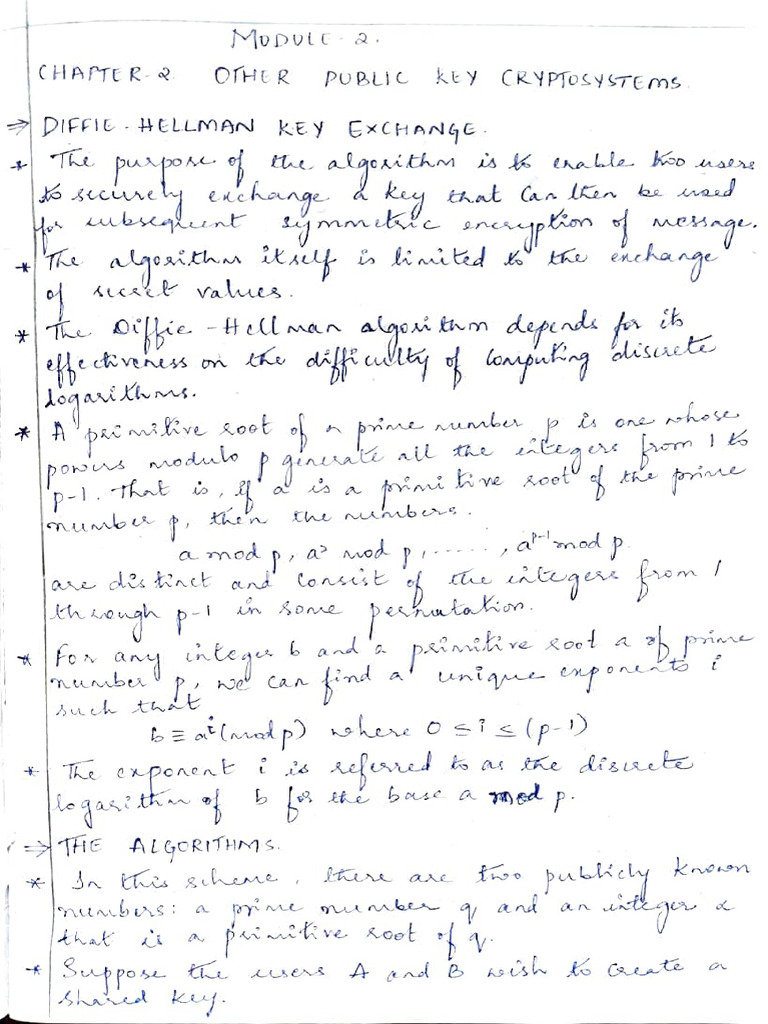 MODULE-2.
CHAPTER-2 OTHER PUBLIC KEY CRYPTOSYSTEMS.
⇒ DIFFIE-HELLMAN KEY EXCHANGE.
* The purpose of the algorithm is to enable two users
to securely exchange a key that can then be used
for subsequent symmetric encryption of message.
* The algorithm itself is limited to the exchange
of secret values.
* The Diffie-Hellman algorithm depends for its
effectiveness on the difficulty of computing discrete
logarithms.
* A primitive root of a prime number p is one whose
powers modulo p generate all the integers from 1 to
p-1. That is, if a is a primitive root of the prime
number p, then the numbers.
a mod p, a² mod p, ......, aᵖ⁻¹ mod p
are distinct and consist of the integers from 1
through p-1 in some permutation.
* For any integer b and a primitive root a of prime
number p, we can find a unique exponents i
such that
b ≡ aⁱ(mod p) where 0 ≤ i ≤ (p-1)
* The exponent i is referred to as the discrete
logarithm of b for the base a mod p.
⇒ THE ALGORITHMS.
* In this scheme, there are two publicly known
numbers: a prime number q and an integer α
that is a primitive root of q.
* Suppose the users A and B wish to create a
shared key.